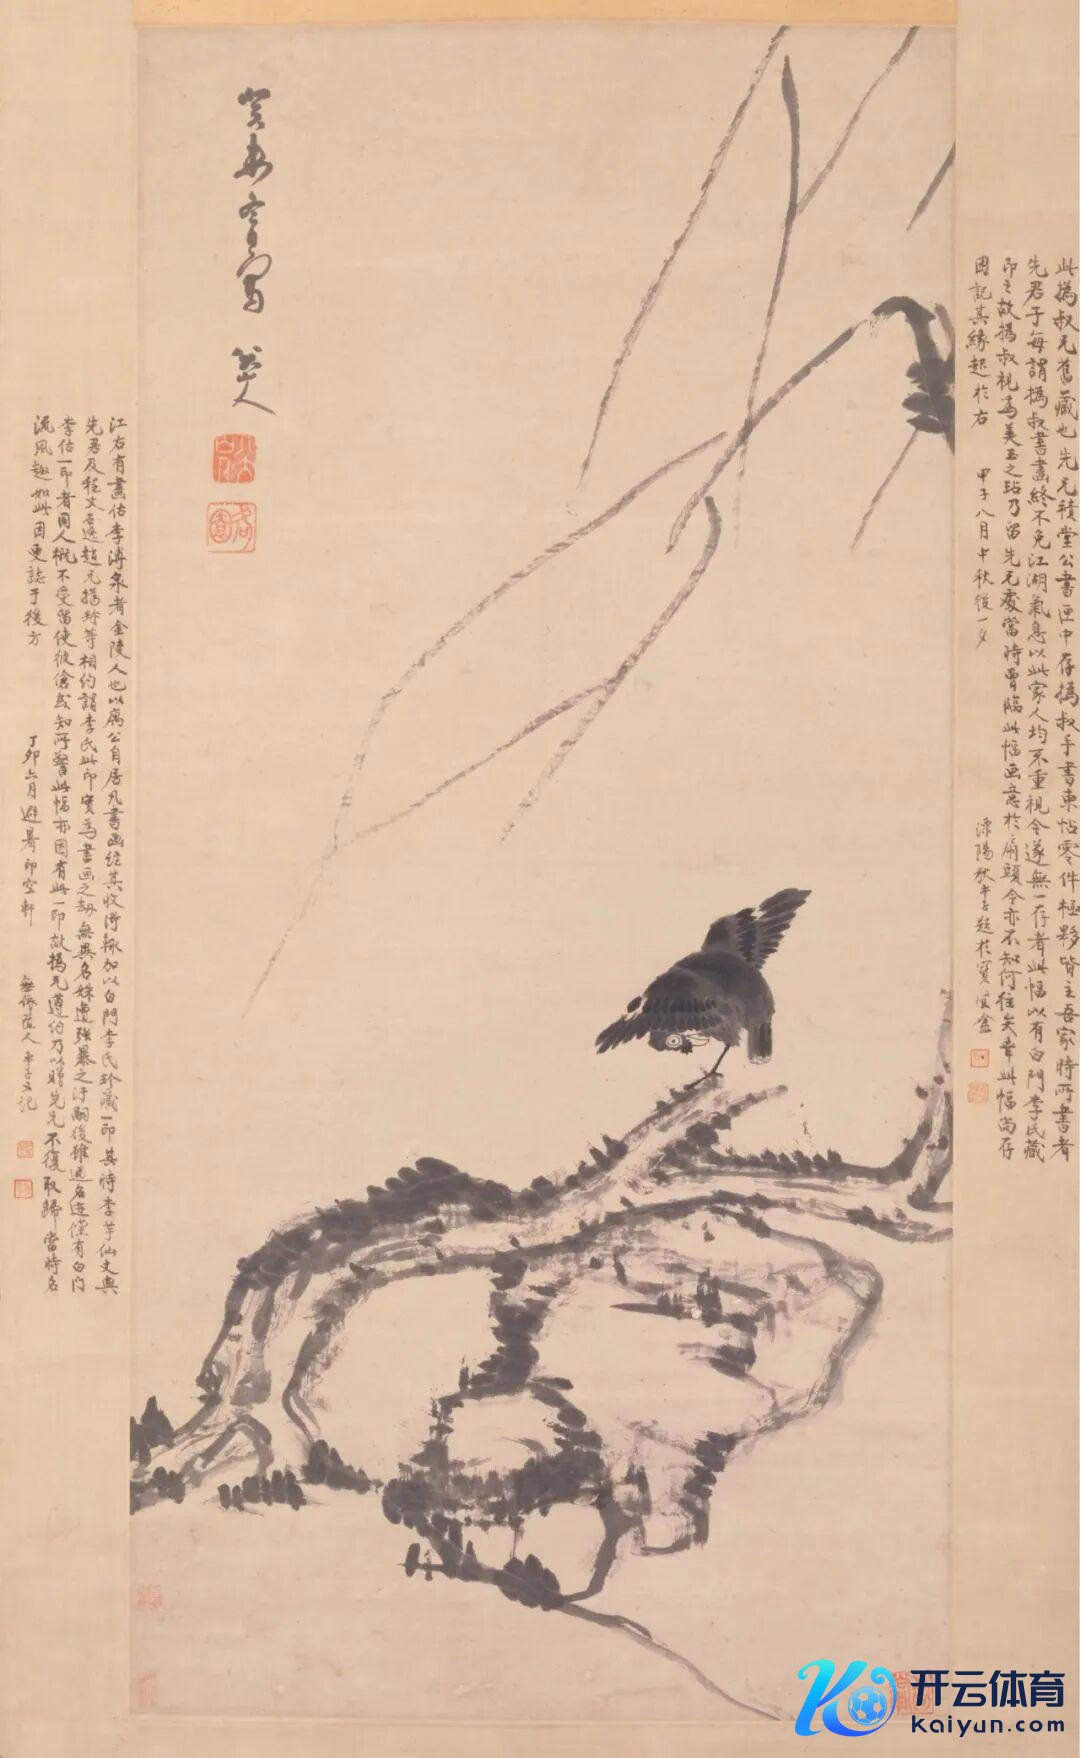 此撝叔兄舊藏也先兄積堂公書匣中存撝叔手書柬帖零件極夥皆主吾家時所書者
先君子每謂撝叔書畫終不免江湖氣息以此家人均不重視今遂無一存者此幅以有白門李氏藏
印之故撝叔視為美玉之玷乃留先兄處當時曾臨此幅画意於扇頭今亦不知何往矣幸此幅尚存
因記其緣起於右 甲子八月中秋後一夕 溧陽狄平子題於寶賢盦
癸未冬日寫 八大山人
江右有畫估李溥泉者金陵人也以廉公自居凡書画經其收得輒加以白門李氏珍藏一印其時李芋仙丈與
先君及程丈石逸趙兄撝叔等相約謂李氏此印實為書画之劫無異名姝遭强暴之汙嗣後雖遇名迹僅有白門
李估一印者同人概不受留使彼傖或知所警此幅亦因有此一印故撝兄遵約乃以贈先兄不復取歸當時名
流風趣如此因更誌于後方 丁卯六月避暑印空軒 平子又記
八大山人
何園
开云体育
kaiyun.com